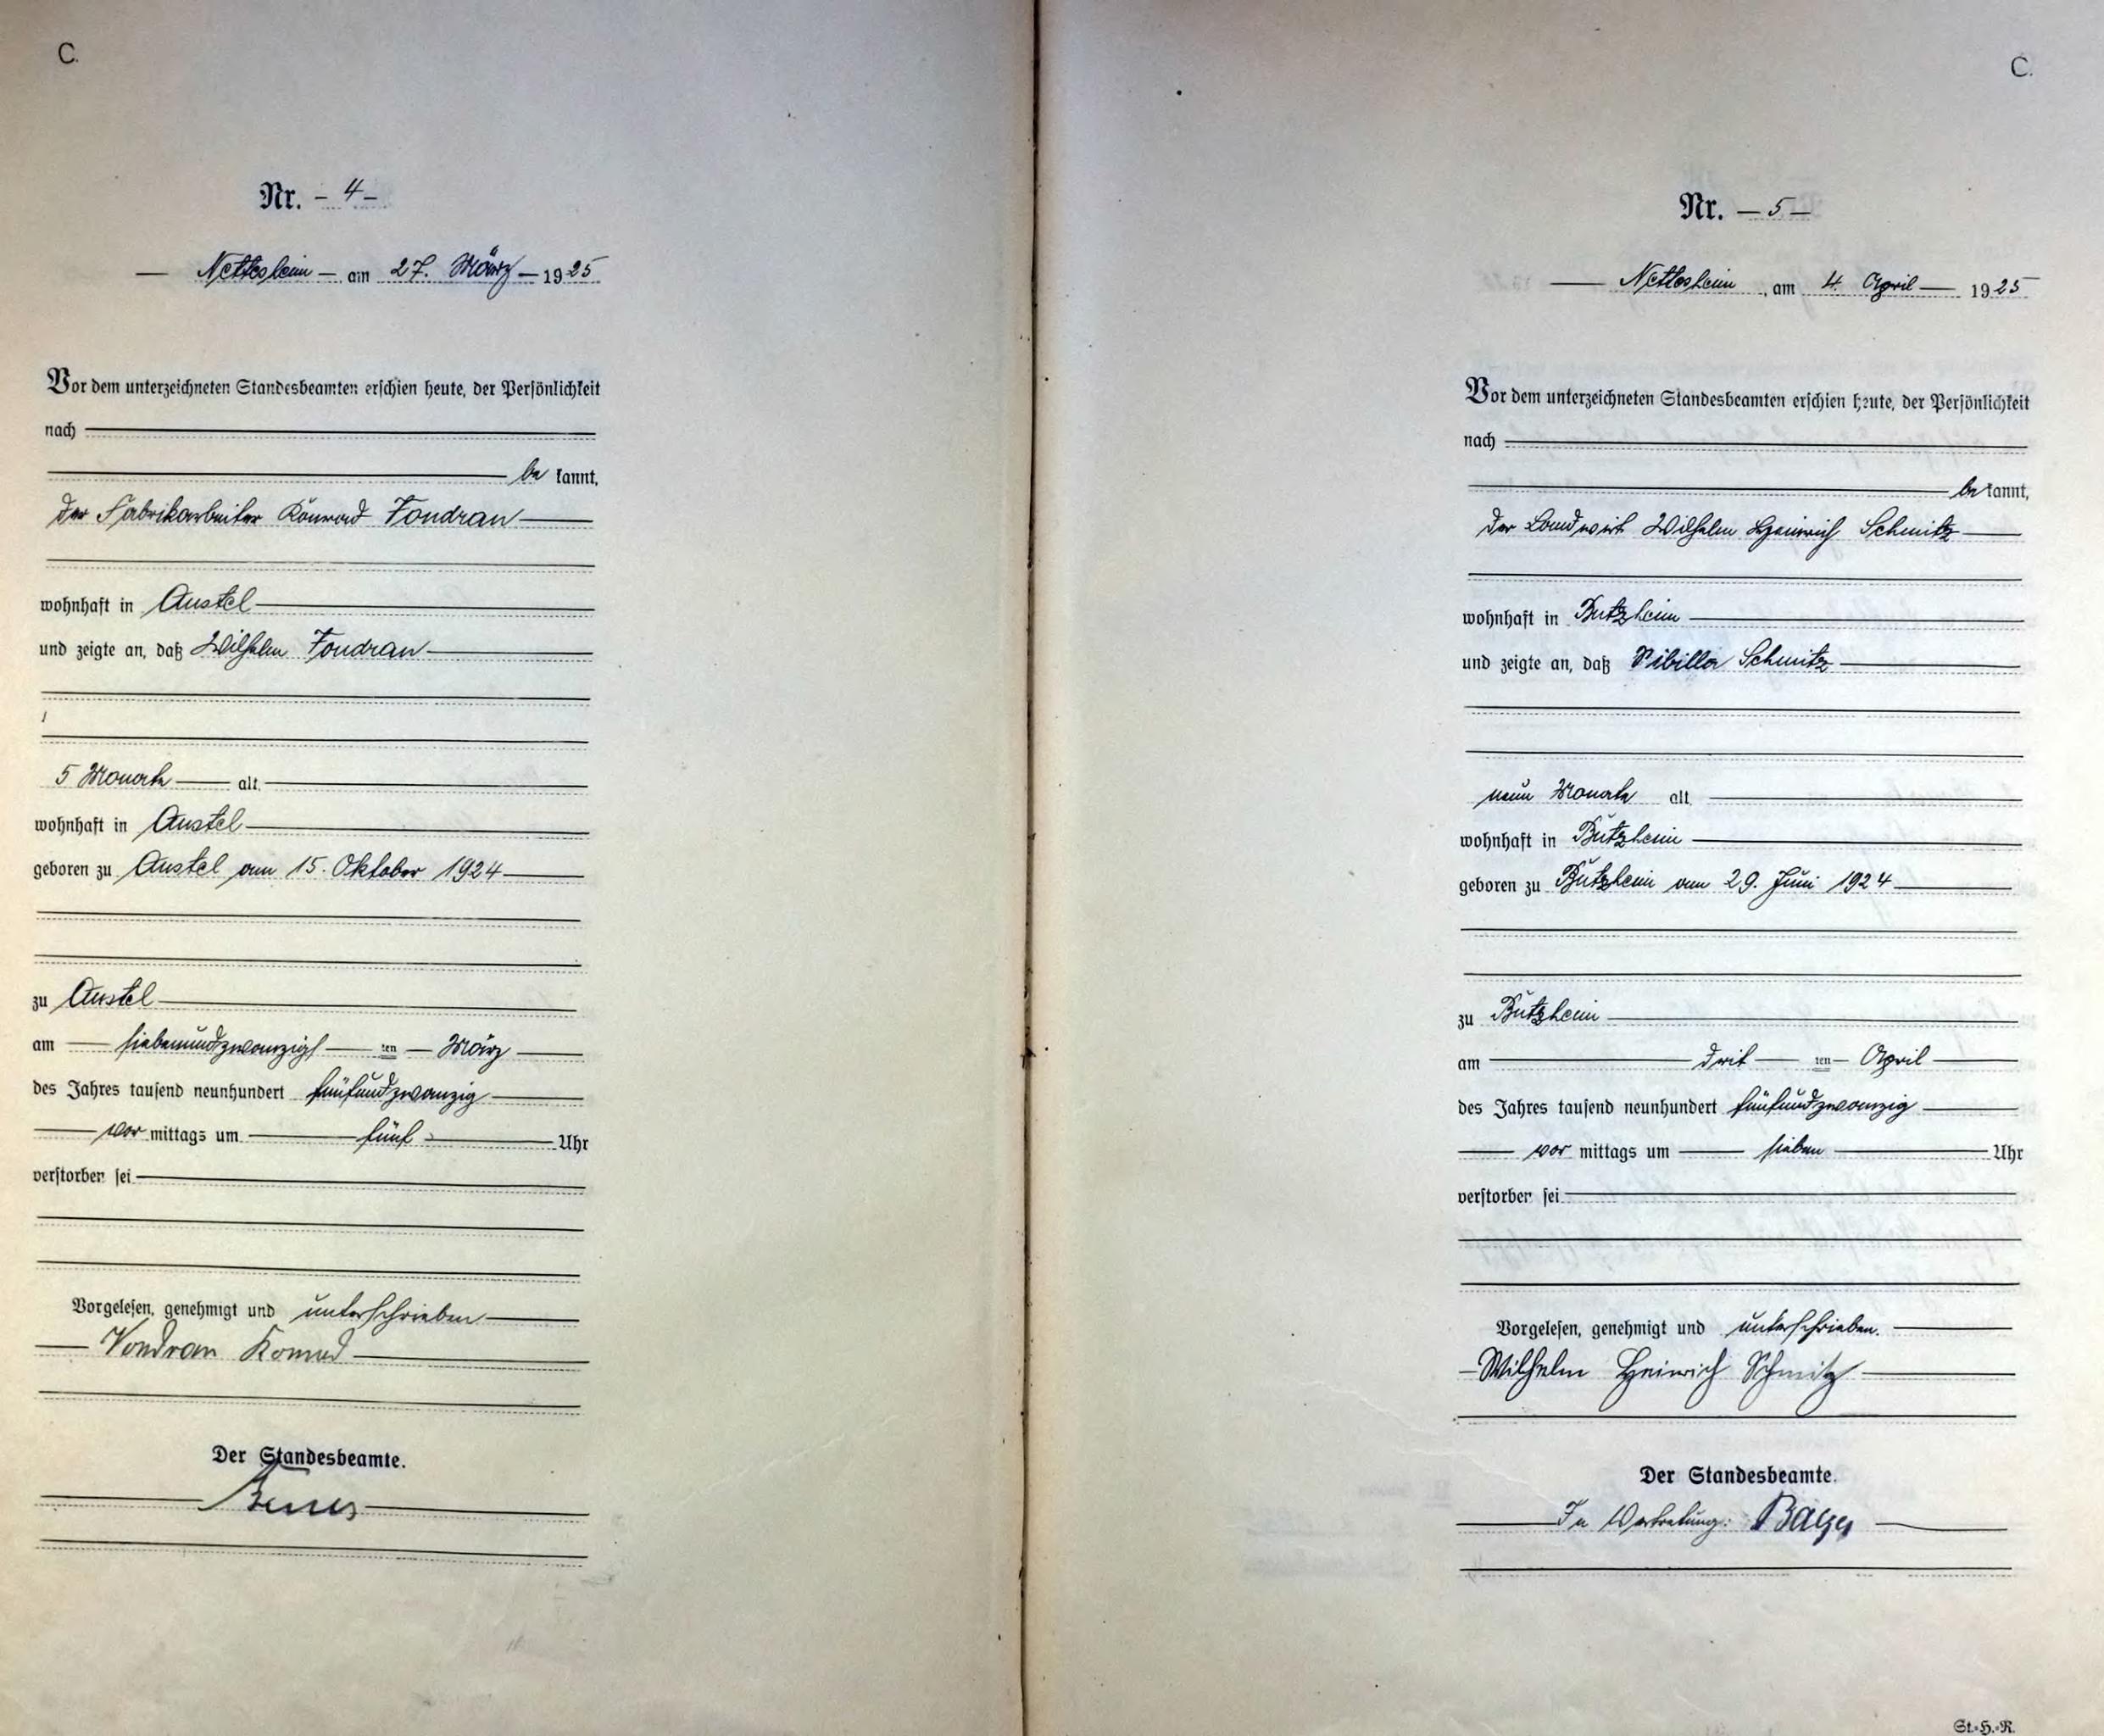 C.
Nr. - 4 -
Nettesheim - am 27. März - 1925
Vor dem unterzeichneten Standesbeamten erschien heute, der Persönlichkeit
nach
be kannt,
der Fabrikarbeiter Konrad Fondran
wohnhaft in Anstel
und zeigte an, daß Wilhelm Fondran
5 Monate alt
wohnhaft in Anstel
geboren zu Anstel am 15. Oktober 1924
zu Anstel
am siebenundzwanzigs ten März
des Jahres tausend neunhundert fünfundzwanzig
vor mittags um fünf Uhr
verstorben sei
Vorgelesen, genehmigt und unterschrieben
Vondran Konrad
Der Standesbeamte.
C.
Nr. - 5 -
Nettesheim, am 4. April 1925
Vor dem unterzeichneten Standesbeamten erschien heute, der Persönlichkeit
nach
be kannt,
der Landwirt Wilhelm Heinrich Schmitz
wohnhaft in Butzheim
und zeigte an, daß Sibilla Schmitz
neun Monate alt
wohnhaft in Butzheim
geboren zu Butzheim am 29. Juni 1924
zu Butzheim
am drit ten April
des Jahres tausend neunhundert fünfundzwanzig
vor mittags um sieben Uhr
verstorben sei
Vorgelesen, genehmigt und unterschrieben.
Wilhelm Heinrich Schmitz
Der Standesbeamte.
In Vertretung:
St.-H.-R.